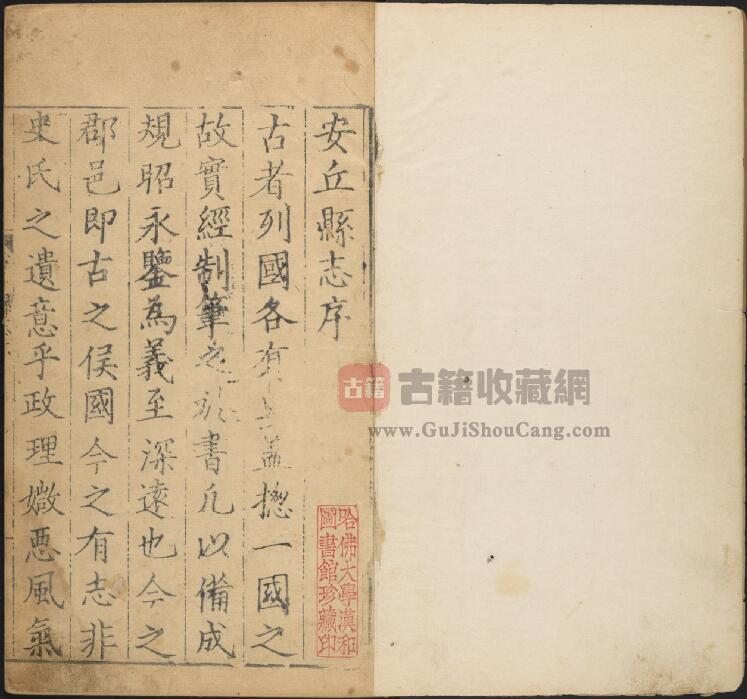 安丘縣志序
古者列國各有史蓋揔一國之
故實經制筆之於書凡以備成
規昭永鑒為義至深遠也今之
郡邑即古之侯國今之有志非
史氏之遺意乎政理媺惡風氣
哈佛大學漢和
圖書館珍藏印
古籍
古籍收藏網
www.GuJiShouCang.com